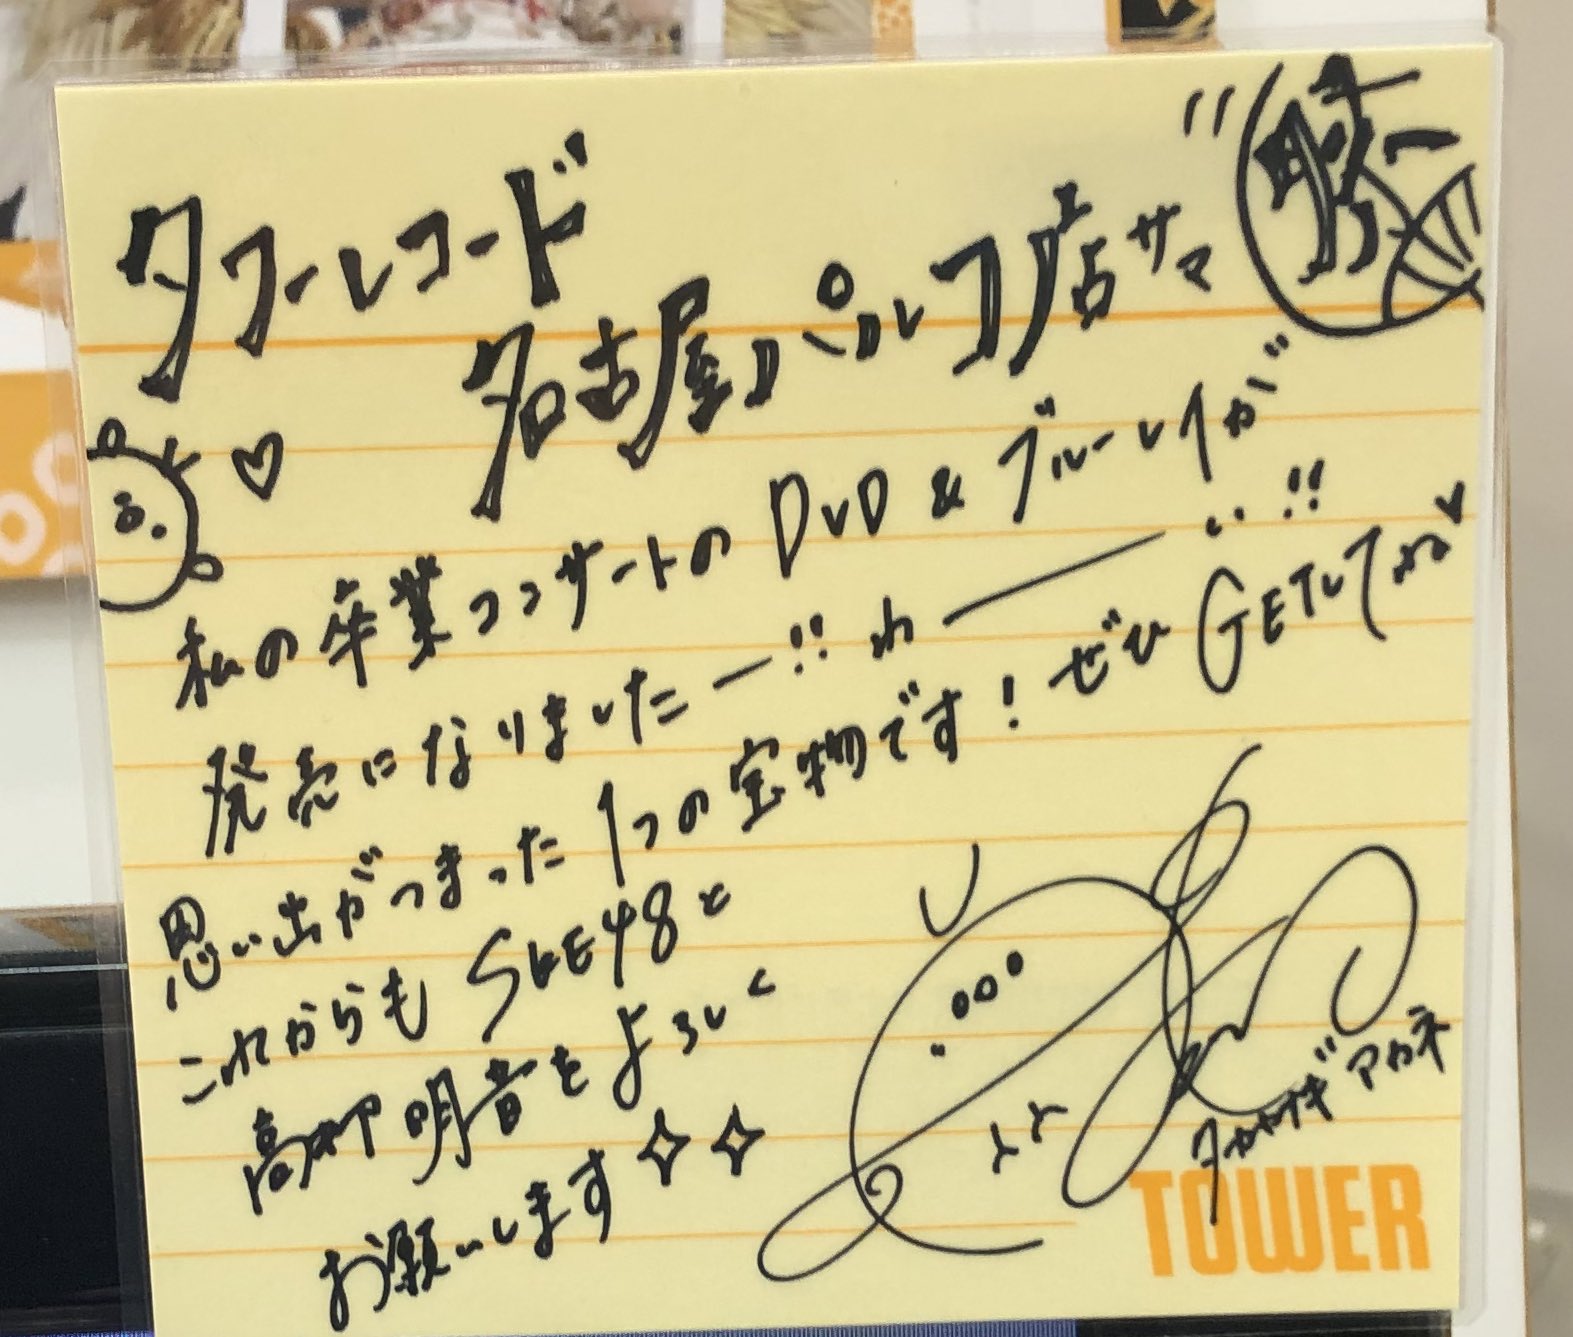 タワーレコード
名古屋パルコ店サマ
私の卒業コンサートのDVD & ブルーレイが
発売になりましたー!! わーーい!!
思い出がつまった1つの宝物です! ぜひGETしてね♥
これからもSKE48と
高柳明音をよろしく
お願いします✧✧
タカヤナギアカネ
TOWER